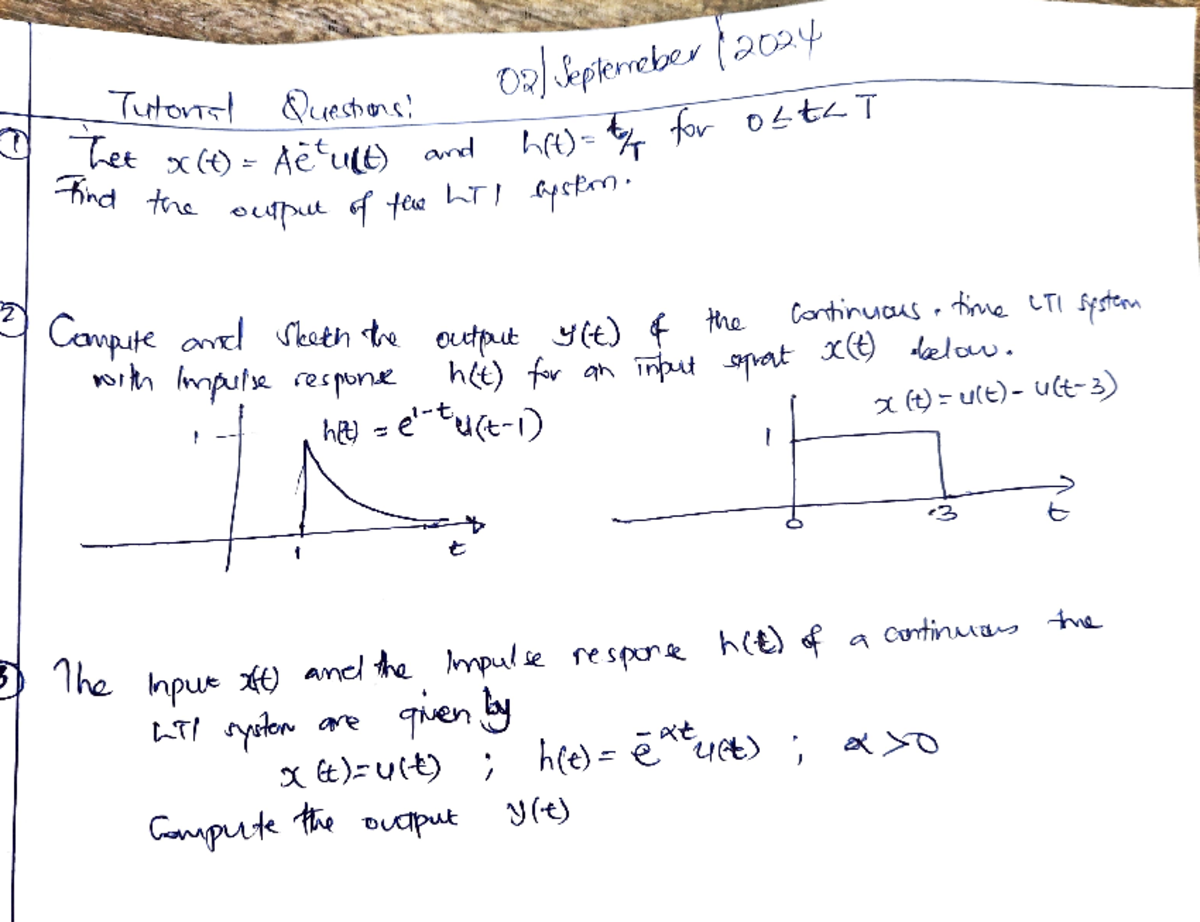 02/Septemeber/2024
Tutorial Questions!
① Let x(t) = Ae⁻ᵗu(t) and h(t) = t/T for 0≤t<T
Find the output of the LTI system.
② Compute and Sketh the output y(t) of the Continuous-time LTI system
with Impulse response h(t) for an input x(t) below.
h(t) = e¹⁻ᵗu(t-1)
x(t) = u(t) - u(t-3)
1
1
1
t
0
3
t
3 The Input x(t) and the Impulse response h(t) of a continuous time
LTI system are given by
x(t)=u(t) ; h(t) = e⁻ᵅᵗu(t) ; α>0
Compute the output y(t)